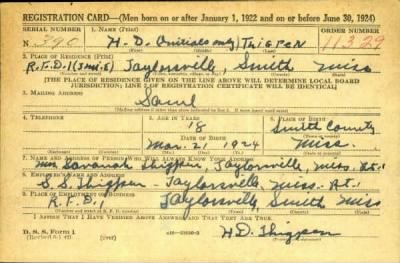 REGISTRATION CARD—(Men born on or after January 1, 1922 and on or before June 30, 1924)
SERIAL NUMBER 1. NAME (Print) ORDER NUMBER
N 390 H. D. (Initials only) Thigpen 11329
2. PLACE OF RESIDENCE (Print)
R.F.D. 1 Taylorsville, Smith Miss
[THE PLACE OF RESIDENCE GIVEN ON THE LINE ABOVE WILL DETERMINE LOCAL BOARD
JURISDICTION; LINE 2 OF REGISTRATION CERTIFICATE WILL BE IDENTICAL]
3. MAILING ADDRESS
Same
[Mailing address if other than place indicated on line 2. If same insert word same]
4. TELEPHONE 5. AGE IN YEARS 6. PLACE OF BIRTH
18 Smith County
DATE OF BIRTH
Mar. 21 1924 Miss.
7. NAME AND ADDRESS OF PERSON WHO WILL ALWAYS KNOW YOUR ADDRESS
Mrs. Savanah Thigpen, Taylorsville, Miss. Rt. 1
8. EMPLOYER'S NAME AND ADDRESS
S. S. Thigpen - Taylorsville, Miss. Rt. 1
9. PLACE OF EMPLOYMENT OR BUSINESS
R.F.D. 1 Taylorsville Smith Miss
I AFFIRM THAT I HAVE VERIFIED ABOVE ANSWERS AND THAT THEY ARE TRUE.
D. S. S. Form 1
(over)
H D. Thigpen